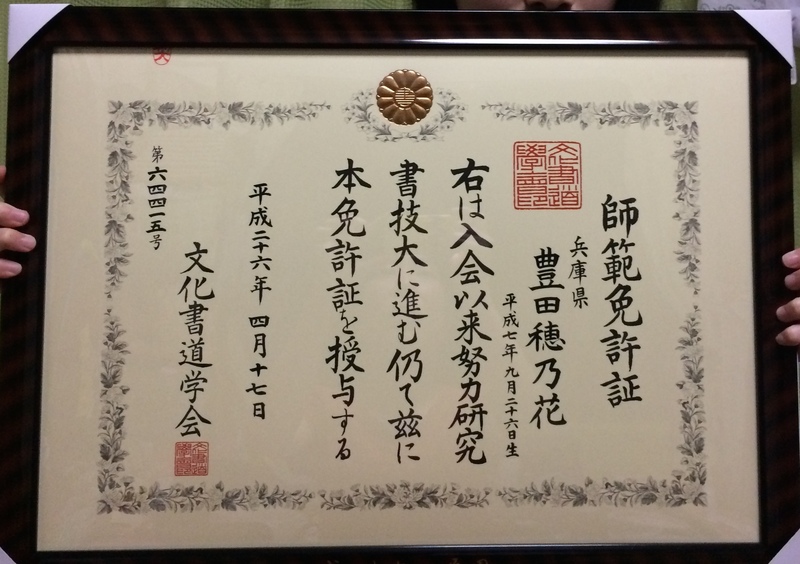 師範免許証
兵庫県
豊田穂乃花
平成七年九月二十六日生
右は入会以来努力研究
書技大に進む仍て茲に
本免許証を授与する
平成二十六年 四月十七日
文化書道学会
第六四四一五号